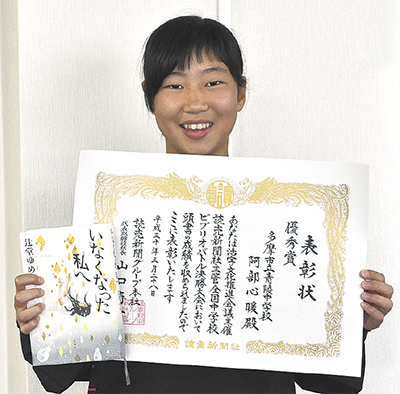 表彰状
優秀賞
多摩市立青陵中学校
阿部心暖殿
あなたは活字文化推進会議主催
読売新聞社主管全国中学校
ビブリオバトル決勝大会において
頭書の成績を収められましたので
ここに表彰いたします
平成三十年三月二十八日
読売新聞グループ本社
山口寿一
讀賣新聞社
いなくなった
私へ
辻堂ゆめ